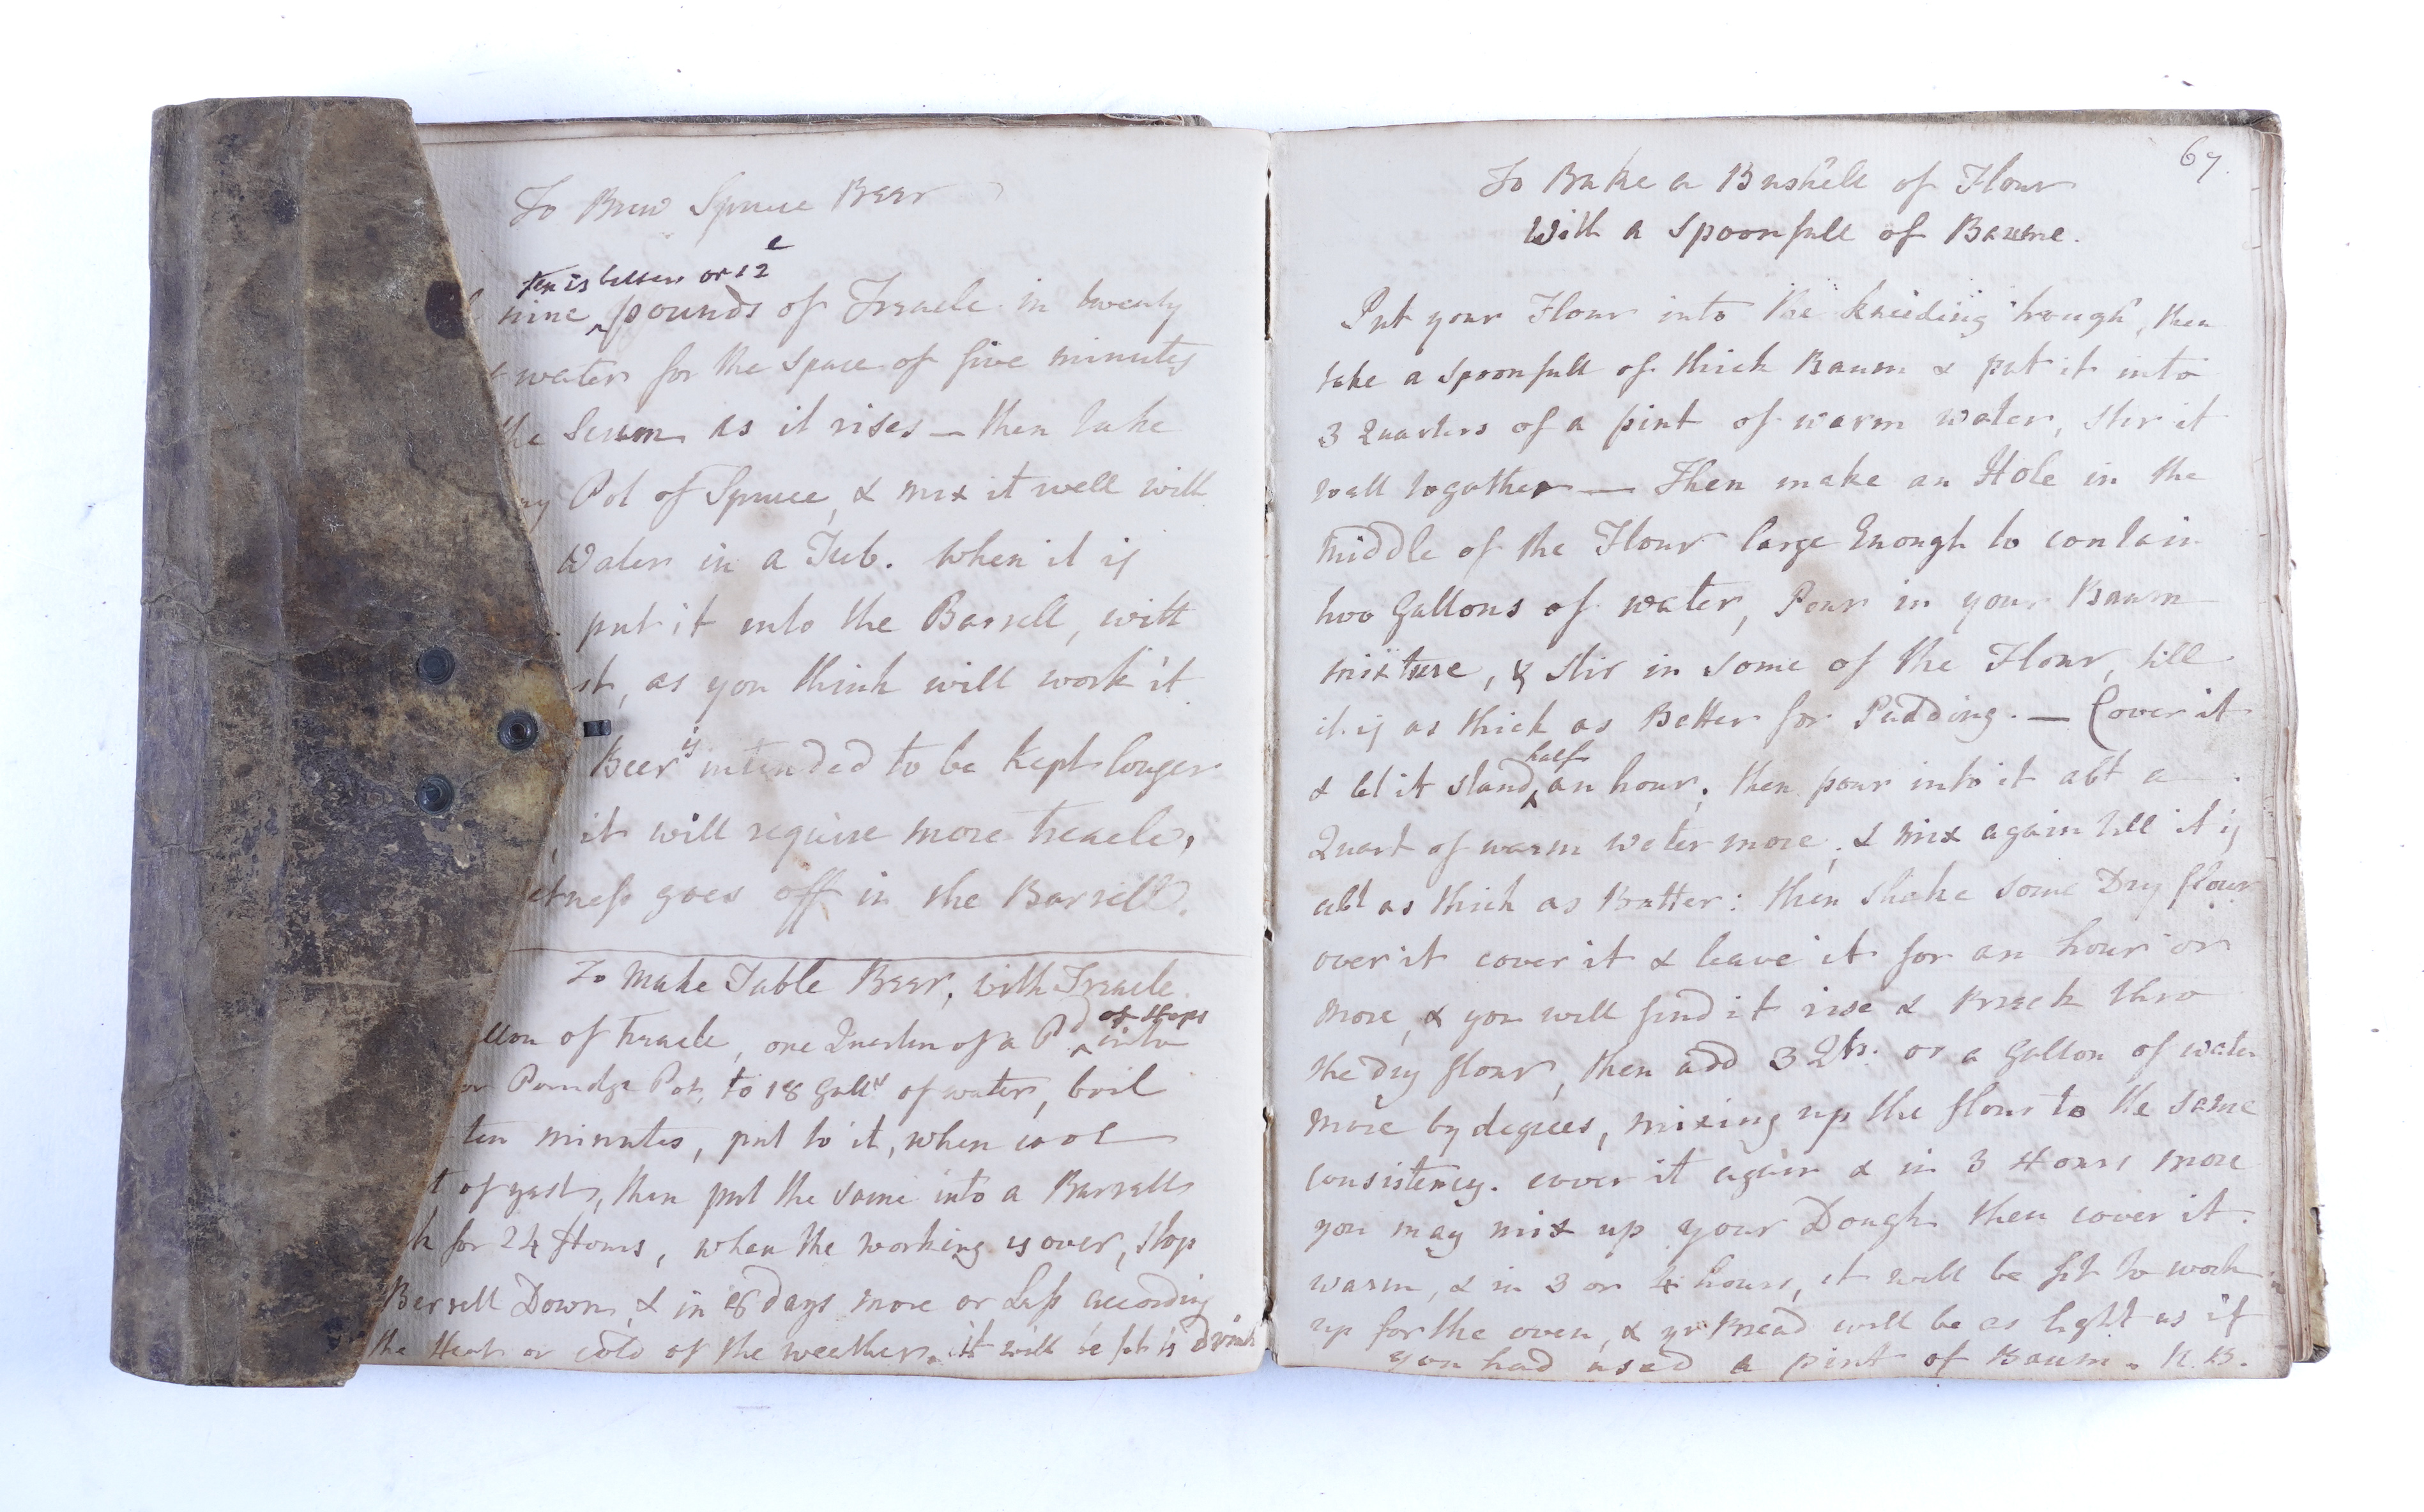 To Brew Spruce Beer
ten is better or 12
nine ^ pounds of Treacle in twenty
water for the space of five minutes
the Scum as it rises — then take
Pot of Spruce, & mix it well with
Water in a Tub. when it is
put it into the Barrell, with
as you think will work it
Beer is intended to be kept longer
it will require more treacle,
goes off in the Barrell.
To Make Table Beer, with Treacle
of Treacle, one Quarter of a Pd ^ of Hops into
Porridge Pot, to 18 Galls of water, boil
ten minutes, put to it, when cool
of yest, then put the same into a Barrell
for 24 Hours, when the working is over, stop
Barrell Down, & in 8 days more or Less according
the Heat or cold of the weather. it will be fit to drink
67.
To Bake a Bushell of Flour
With a spoonfull of Baume.
Put your Flour into the kneeding trough, then
take a spoonfull of thick Baum & put it into
3 Quarters of a pint of warm water, stir it
well together — Then make an Hole in the
middle of the Flour large Enough to contain
two Gallons of water, Pour in your Baum
mixture, & stir in some of the Flour, till
it is as thick as Batter for Pudding. — Cover it
& let it stand ^ half an hour, then pour into it abt a
Quart of warm water more, & mix again till it is
abt as thick as Batter: then shake some Dry flour
over it cover it & leave it for an hour or
more, & you will find it rise & Break thro
the dry flour, then add 3 Qts. or a Gallon of water
more by degrees, mixing up the flour to the same
consistency. cover it again & in 3 Hours more
you may mix up your Dough then cover it
warm, & in 3 or 4 hours, it will be fit to work
up for the oven, & yr Bread will be as light as if
you had used a pint of Baum. N.B.